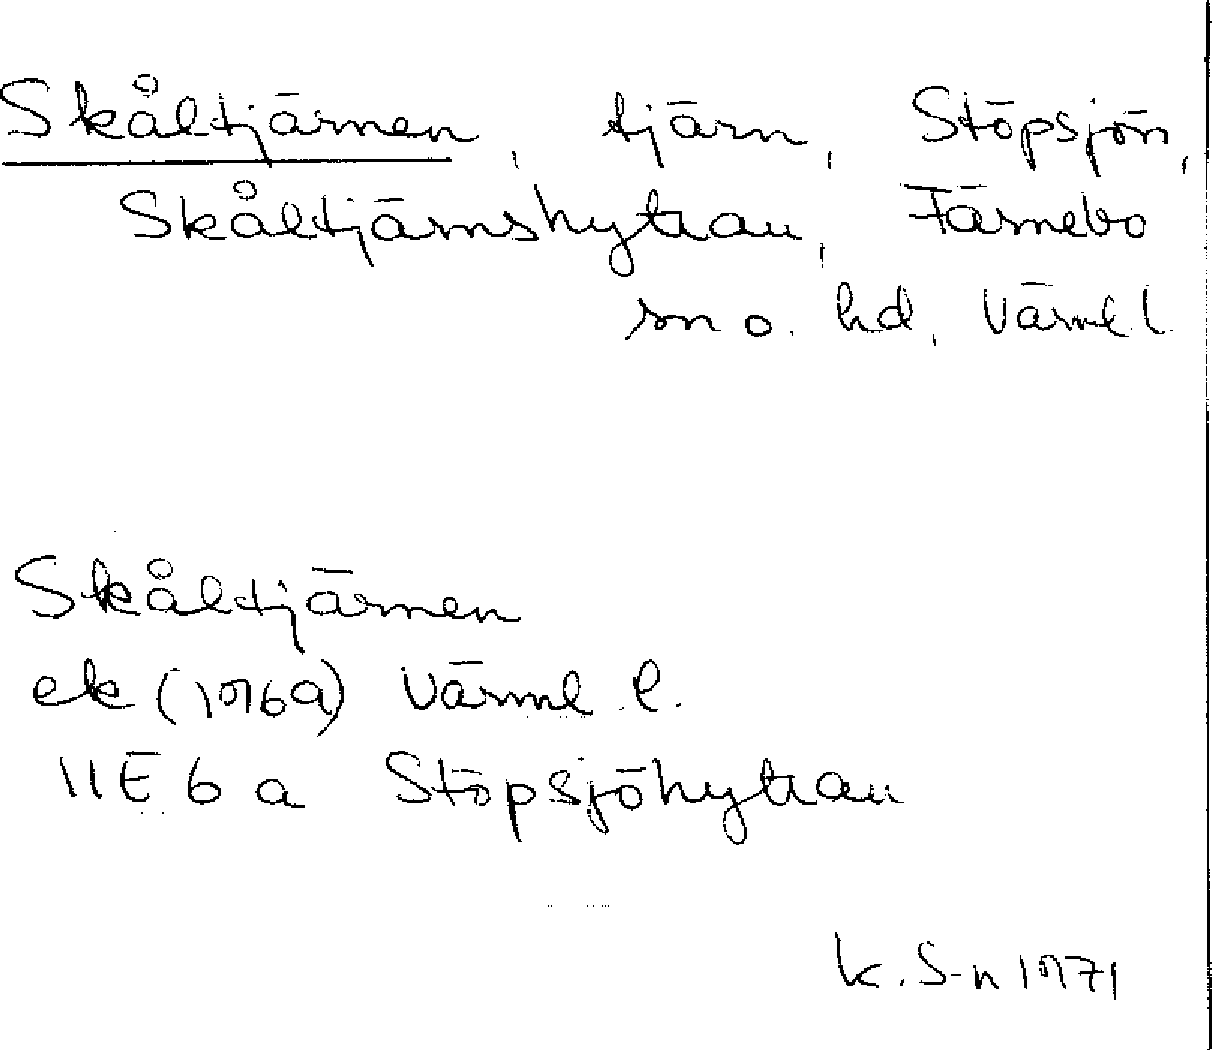 Skåltjärnen, tjärn, Stöpsjön,
Skåltjärnshyttan, Färnebo
sn o. hd, Värml. l
Skåltjärnen
ek (1969) Värml l.
11E 6 a Stöpsjöhyttan
K. S-n 1971